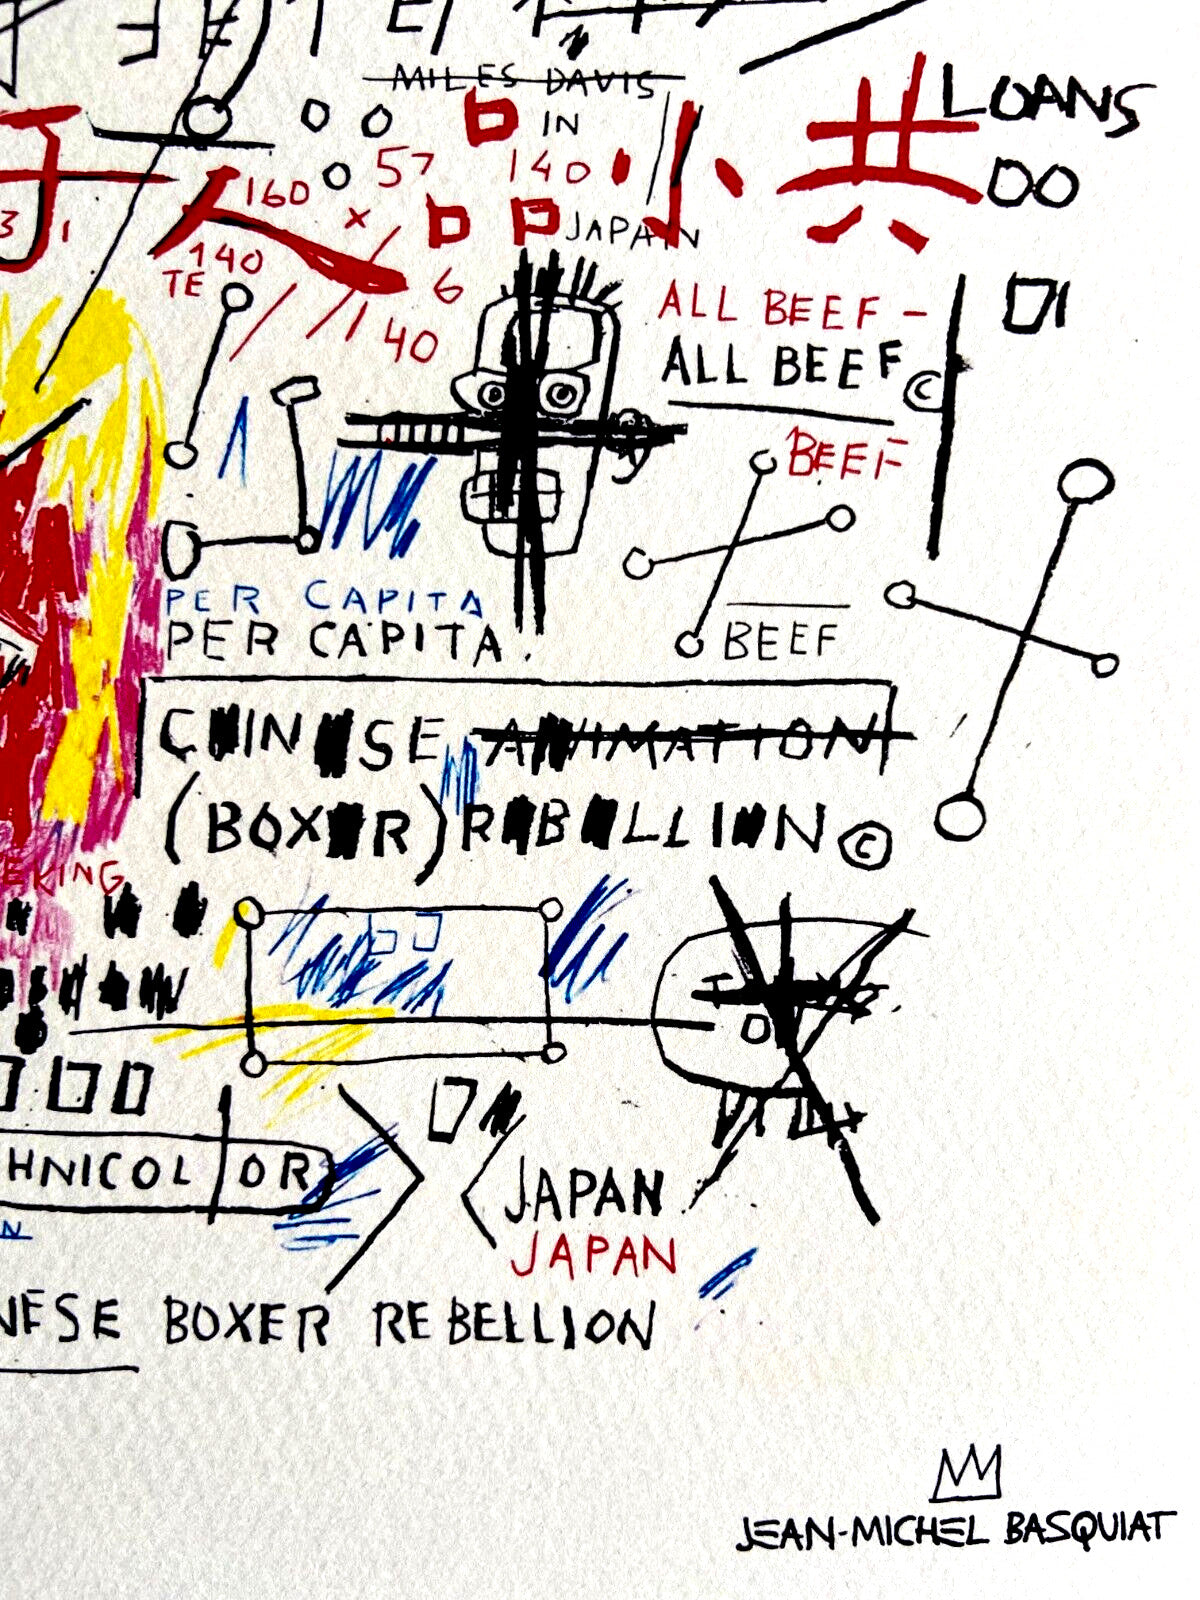 MILES DAVIS
LOANS
IN
57
140
小 共
00
子
人
160
3 1
×
JAPAN
TE 140
6
40
ALL BEEF -
ALL BEEF ©
BEEF
PER CAPITA
PER CAPITA.
BEEF
CHINESE ANIMATION
(BOXER) REBELLION ©
EKING
HNICOLOR
JAPAN
N
JAPAN
NESE BOXER REBELLION
JEAN-MICHEL BASQUIAT